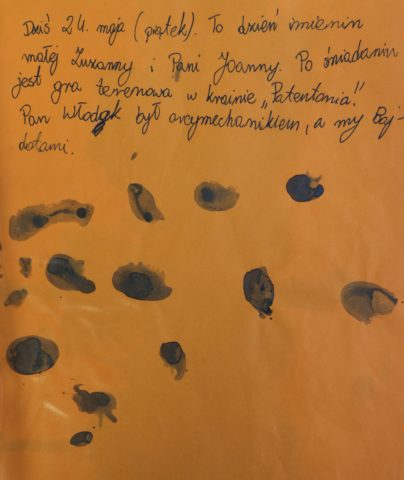 Dziś 24. maja (piątek). To dzień imienin
małej Zuzanny i Pani Joanny. Po śniadaniu
jest gra terenowa w krainie „Patentania".
Pan Włodek był arcymechanikiem, a my Baj-
dotami.